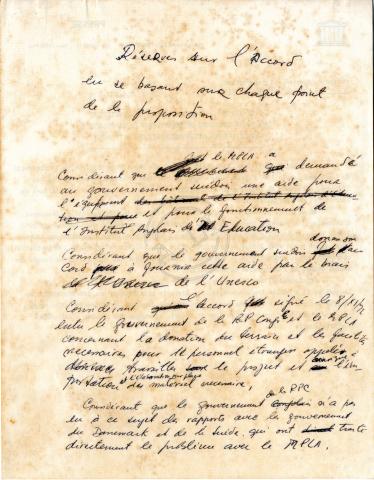 Réserves sur l'Accord
en se basant sur chaque point
de la proposition
Considérant que le MPLA a demandé
au gouvernement suédois une aide pour
l'équipement
et pour le fonctionnement de
l'Institut Angolais d'Education
Considérant que le gouvernement suédois
cord à donner cette aide par le biais
de l'Unesco
Considérant l'accord signé le
entre le Gouvernement de la RP Congo et le MPLA
concernant la donation du terrain et les
nécessaires pour le personnel étranger appelé à
travailler le projet et
portation des matériel nécessaire,
Considérant que le gouvernement de la RPC n'a pas
eu à ce sujet des rapports avec les gouvernement
du Danemark et de la Suède, qui ont traité
directement le problème avec le MPLA.